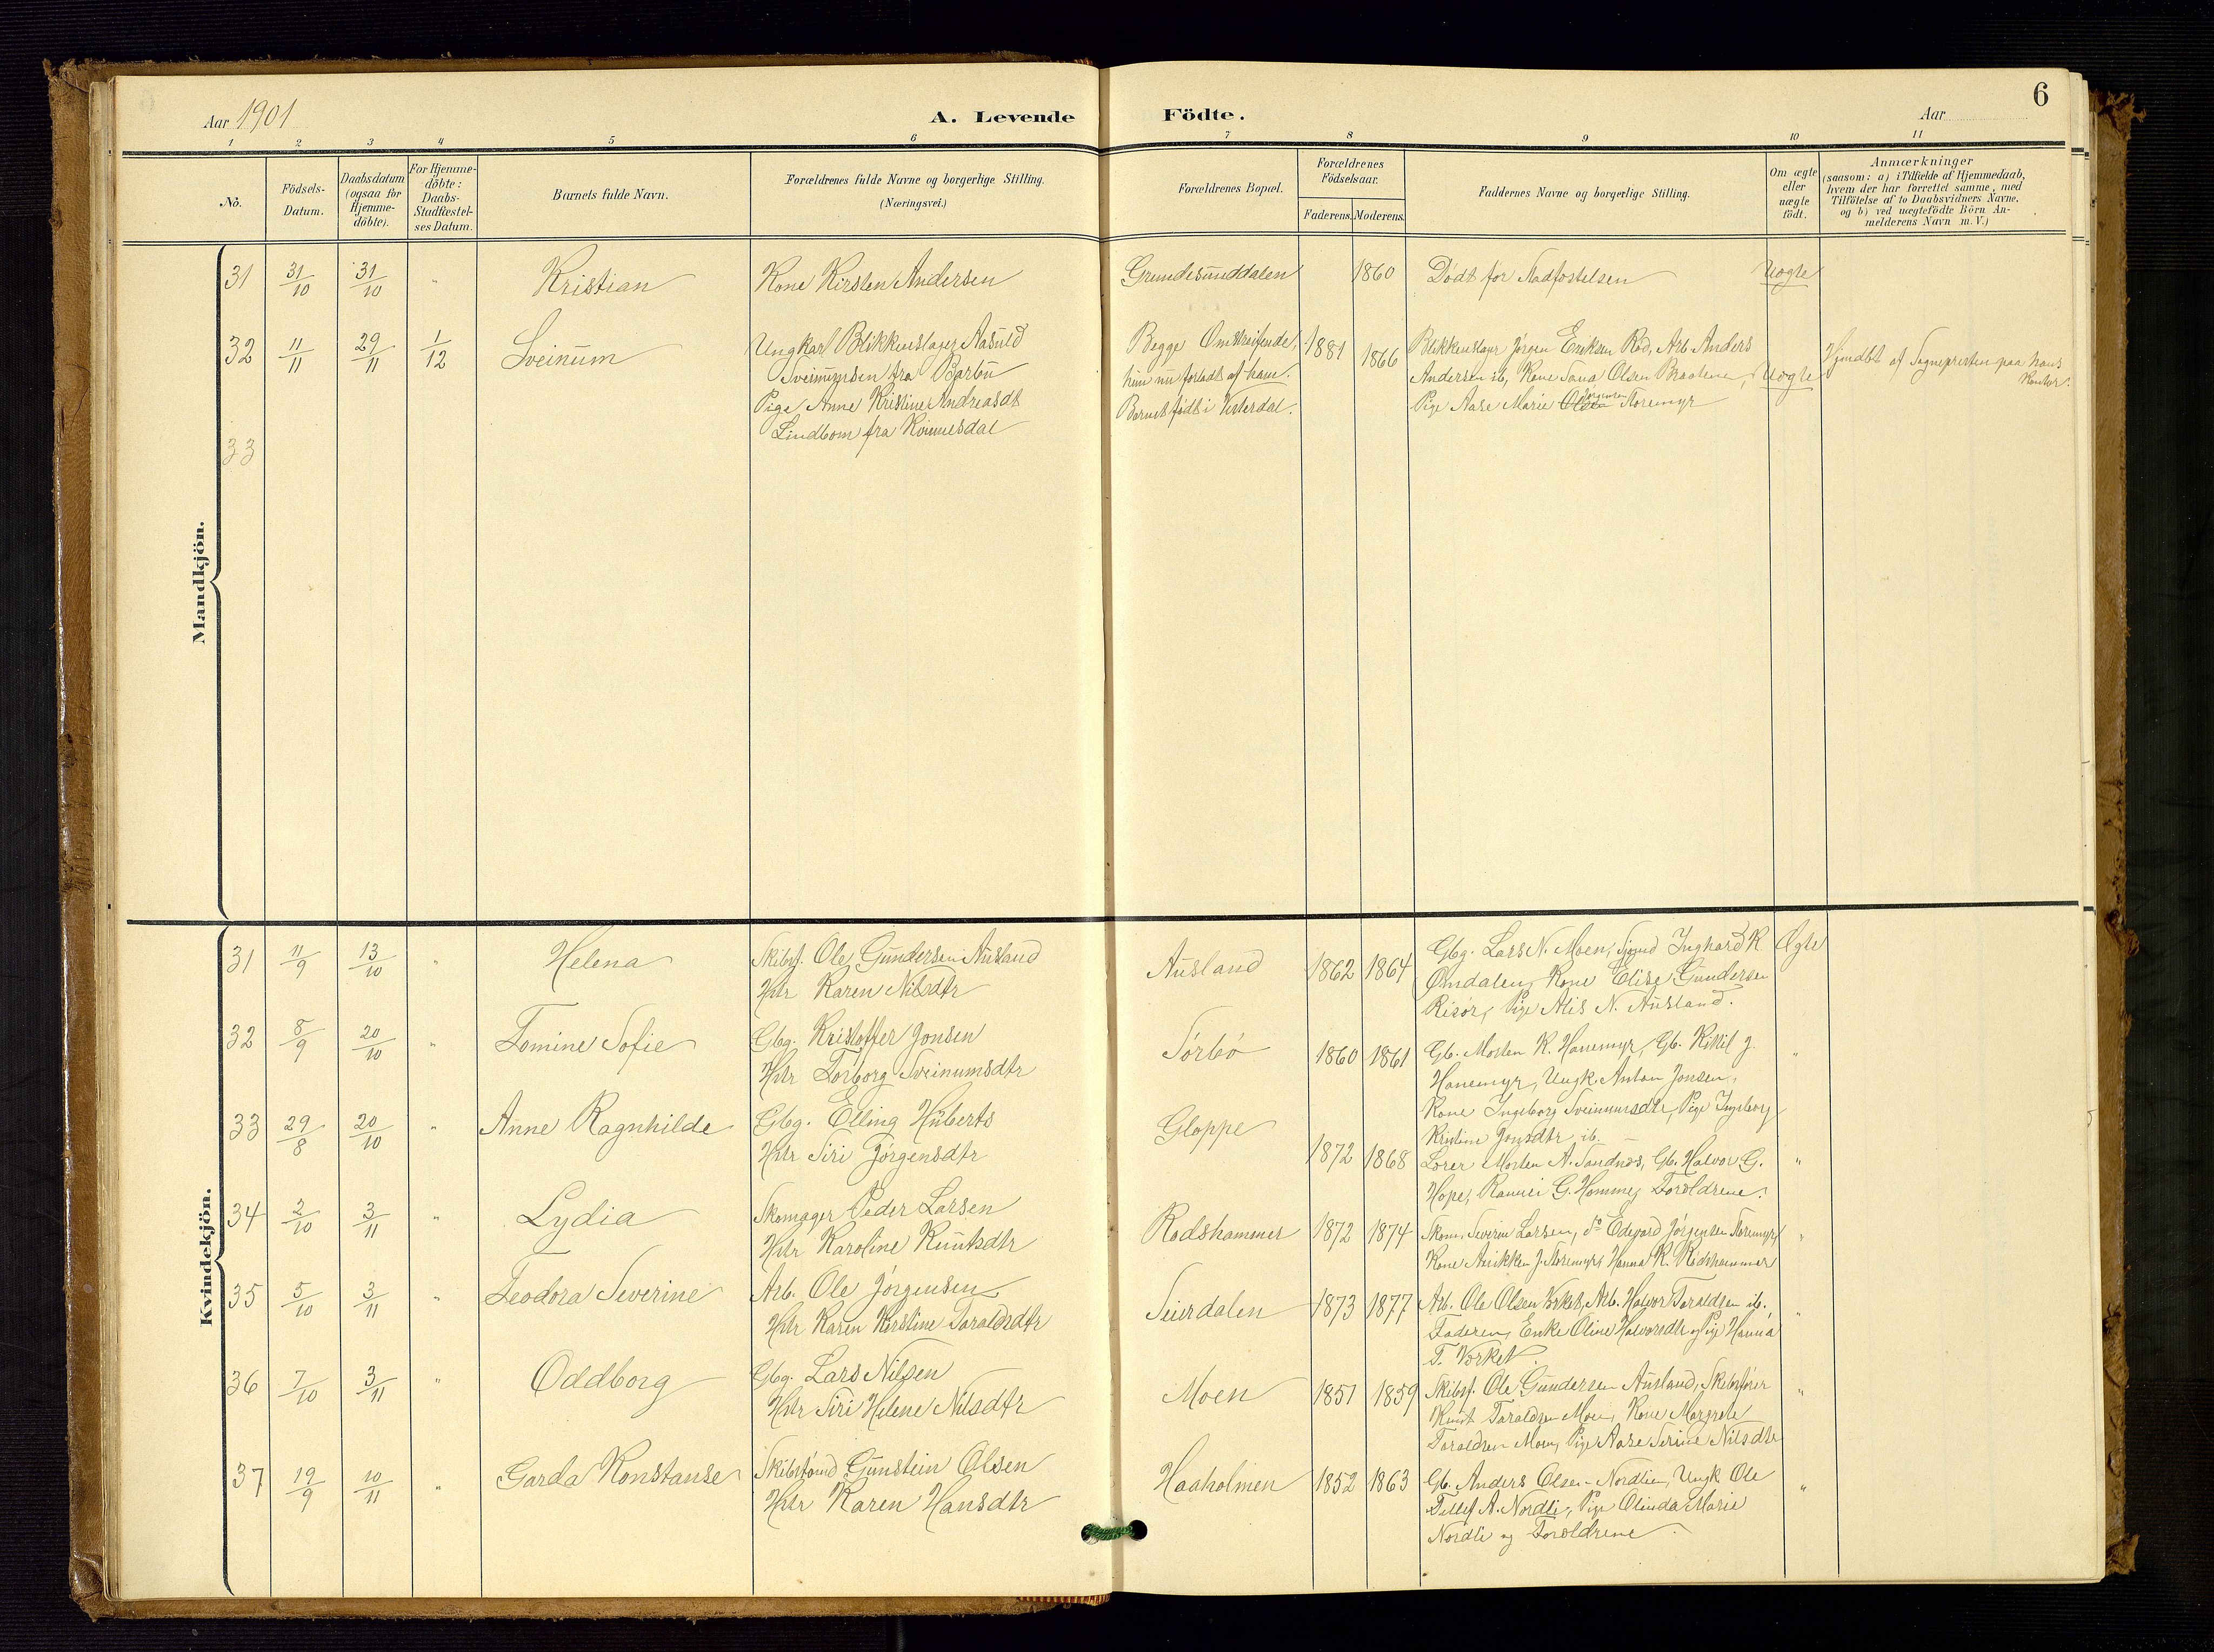 6
Aar 1901
A. Levende Födte.
Aar
1 2 3 4 5 6 7 8 9 10 11
No.
Födsels-Datum.
Daabsdatum (ogsaa for Hjemme-döbte).
For Hjemme-döbte: Daabs-Stadfæstel-ses Datum.
Barnets fulde Navn.
Forældrenes fulde Navne og borgerlige Stilling. (Næringsvei.)
Forældrenes Bopæl.
Forældrenes Födselsaar.
Faderens. Moderens.
Faddernes Navne og borgerlige Stilling.
Om ægte eller uægte födt.
Anmærkninger
(saasom: a) i Tilfælde af Hjemmedaab,
hvem der har forrettet samme, med
Tilföielse af to Daabsvidners Navne,
og b) ved uægtefödte Börn An-
melderens Navn m. V.)
Mandkjön.
31 31/10 31/10 " Kristian Kone Kirsten Andersen Grundesunddalen 1860 Dødt før Stadfæstelsen Uægte
32 11/11 29/11 1/12 Sveinum Ungkarl Blikkenslager Aasuld Begge Omstreifende, 1881 1866 Blikkenslager Jörgen Eriksen Rød, Arb. Anders
Sveinumsen fra Barbu hun nu forladt af ham. Andersen ib, Kone Olsen Braatene, Uægte Hjemdbt af Sognepresten paa hans Kontor.
Pige Anne Kristine Andreasdt Barnet født i Vesterdal. Pige Aase Marie Olsen Jörgensen Moremyr
Lindbom fra
33
Kvindekjön.
31 11/9 13/10 " Helena Skibsf. Ole Gundersen Ausland Ausland 1862 1864 Gbg. Lars N. Moen, Inghard K Ægte
Hstr Karen Nilsdtr Omdalen, Kone Elise Gundersen
Risør, Pige Alis N. Ausland.
32 8/9 20/10 " Tomine Sofie Gbg. Kristoffer Jonsen Sørbø 1860 1861 Gb. Morten K. Hanemyr, Gb. Kittil J. "
Hstr Torborg Sveinumsdtr Hanemyr, Ungk. Anton Jonsen,
Kone Ingeborg Sveinumsdtr, Pige Ingeborg
Kristine Jonsdtr ib.
33 29/8 20/10 " Anne Ragnhilde Gbg. Elling Huberts Gloppe 1872 1868 Lærer Morten A. Sandnes, Gb. Halvor G. "
Hstr Siri Jörgensdtr Hope, G. Homme, Forældrene.
34 2/10 3/11 " Lydia Skomager Peder Larsen Rødshammer 1872 1874 Skom. Severin Larsen, do Edvard Jörgensen Moremyr, "
Hstr Karoline Knutsdtr Kone J. Moremyr, Hanna K. Rødshammer
35 5/10 3/11 " Teodora Severine Arb. Ole Jörgensen Seierdalen 1873 1877 Arb. Ole Olsen Verket, Arb. Halvor Taraldsen ib. "
Hstr Karen Kirstine Taraldsdtr Faderen, Enke Oline Halvorsdtr og Pige Hanna
T. Verket
36 7/10 3/11 " Oddborg Gbg. Lars Nilsen Moen 1851 1859 Skibsf. Ole Gundersen Ausland, Skibsfører "
Hstr Siri Helene Nilsdtr Knut Taraldsen Moen, Kone Margrete
Taraldsen Moen, Pige Aase Serine Nilsdtr
37 19/9 10/11 " Garda Konstanse Skibstømd Gunstein Olsen Haaholmen 1852 1863 Gb. Anders Olsen Nordlien, Ungk Ole "
Hstr Karen Hansdtr Tellef A. Nordli, Pige Olinda Marie
Nordli og Forældrene